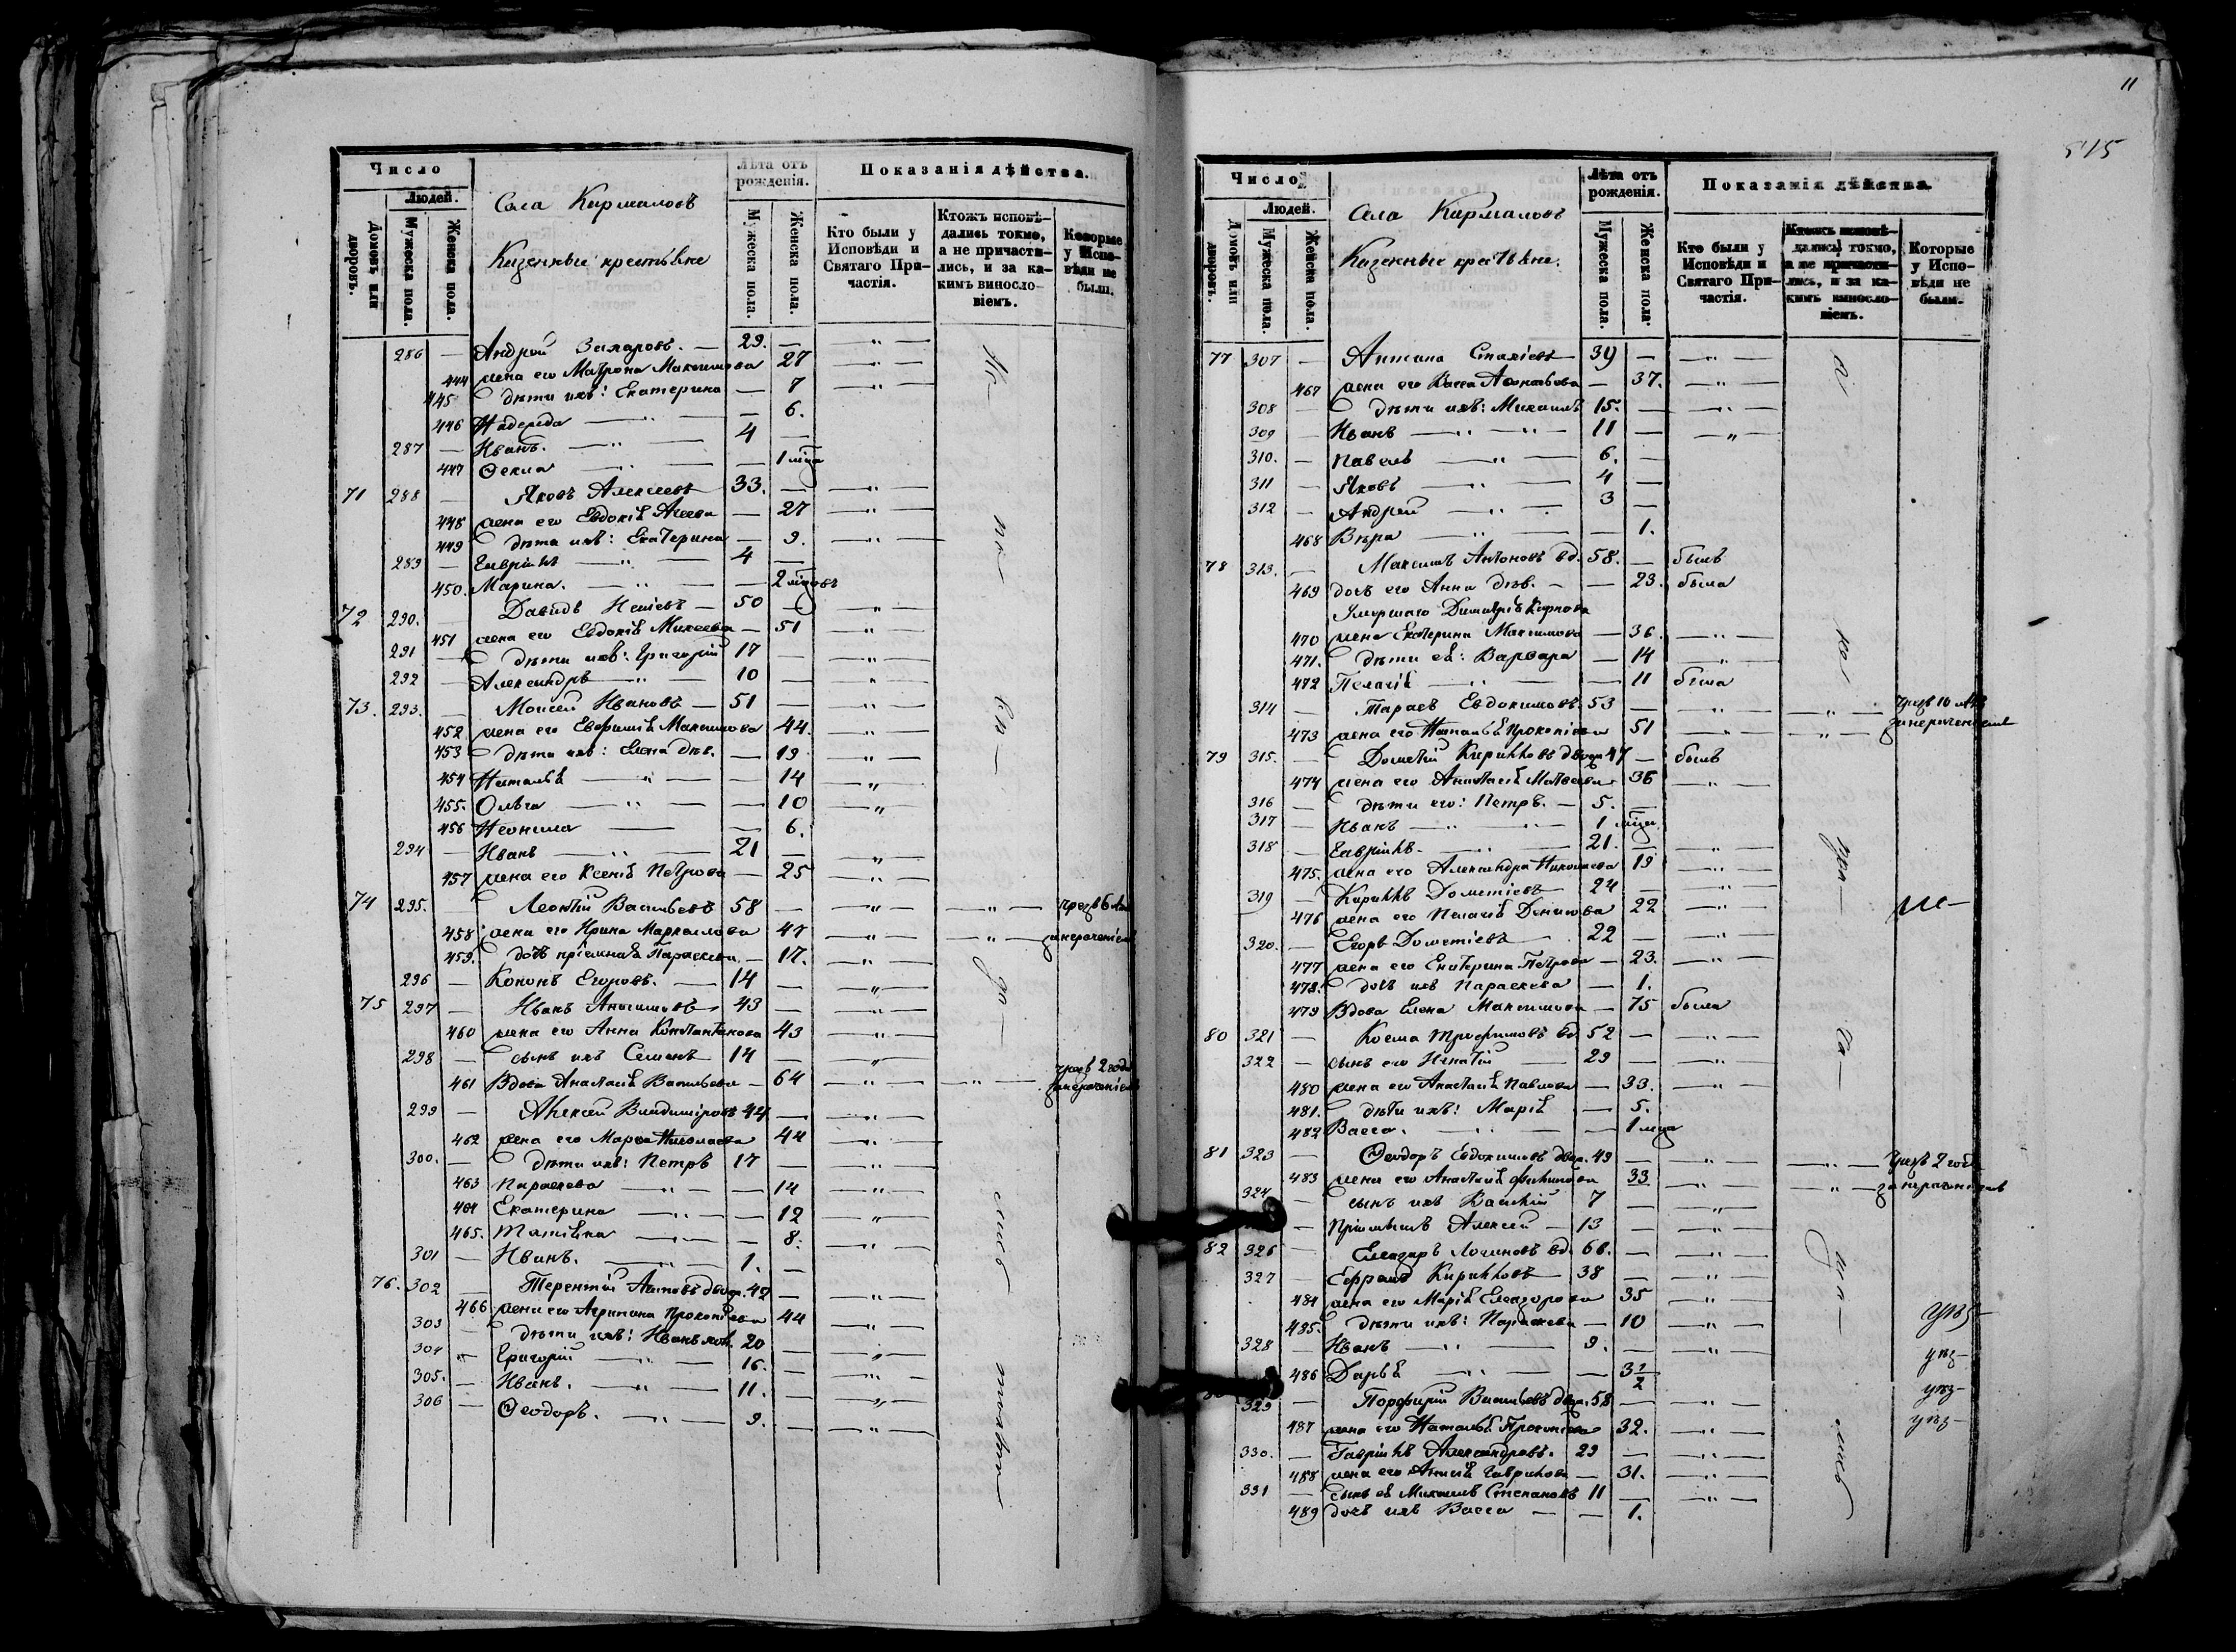 11
515
Число
Людей.
Домовъ или дворовъ.
Мужеска пола.
Женска пола.
Села
Казенные крестьяне
Лѣта отъ рожденія.
Мужеска пола.
Женска пола.
Показанія дѣйства.
Кто были у Исповѣди и Святаго Причастія.
Ктожъ исповѣдались токмо, а не причастились, и за какимъ винословіемъ.
Которые у Исповѣди не были.
286 — Андрей Захаровъ. — 29. — — " —
444 жена его Матрона Максимова 27 — " —
445 дѣти ихъ: Екатерина — 7 — " —
446 Надежда — " — — 6.
287 — Иванъ. — " — 4 —
447 Ѳекла — " — — 1 мца
71 288 — Яковъ Алексеевъ 33. — — " —
448 жена его Евдокія Агеева — 27 — " —
449 дѣти ихъ: Екатерина — 9. — " —
289 — Гавріилъ — " — 4 —
450. Марина. — " — — 2
72 290. — Давидъ — 50 — — " —
451 жена его Евдокія Михеева — 51 — " —
291 — дѣти ихъ: Григорій 17 — — " —
292 — Александръ — " — 10 — — " —
73. 293. — Моисей Ивановъ — 51 — — " —
452 жена его Евфимія Максимова 44. — " —
453 дѣти ихъ: Елена дѣв. — 19 — " —
454 Наталья — " — — 14 — " —
455. Ольга — " — — 10 — " —
456 Неонила — — 6.
294 — Иванъ — " — 21 — — " —
457 жена его Ксенія Петрова — 25 — " —
74 295. — Леонтій Васильевъ 58 — — " — — " —
458 жена его Ирина Маркеллова 47 — " — — " —
459. дочь пріемная Параскева — 17. — " —
296 — Кононъ Егоровъ. — 14 — — " —
75 297 — Иванъ 43 — — " —
460 жена его Анна Константинова 43 — " —
298 — сынъ ихъ Семенъ 14 — — " —
461 Вдова Анастасія Васильева — 64 — " — — " — чрезъ 2 года
299 — Алексей Владиміровъ 44 — — " —
462 жена его Марѳа Николаева 44 — " —
300. — дѣти ихъ: Петръ 17 — — " —
463 Параскева — " — — 14 — " —
464 Екатерина — " — — 12 — " —
465. Татіана — " — — 8. — " —
301 — Иванъ. — " — 1. —
76. 302 — Терентій 42 — — " —
466 жена его Агрипина Прокопіева 44 — " —
303 — дѣти ихъ: Иванъ 20 — — " —
304 " Григорій — " — 16. — — " —
305. — Иванъ. — " — 11. — — " —
306 — Ѳеодоръ. — " — 9. — — " —
Число
Людей.
Домовъ или дворовъ.
Мужеска пола.
Женска пола.
Села
Казенные крестьяне.
Лѣта отъ рожденія.
Мужеска пола.
Женска пола.
Показанія дѣйства.
Кто были у Исповѣди и Святаго Причастія.
Ктожъ исповѣдались токмо, а не причастились, и за какимъ винословіемъ.
Которые у Исповѣди не были.
77 307 — 39 — — " —
467 жена его Васса — 37. — " —
308 — дѣти ихъ: Михаилъ 15. — — " —
309 — Иванъ — " — " — 11 — — " —
310. — Павелъ — " — 6. —
311 — Яковъ — " — 4 —
312 — Андрей — " — 3 —
468 Вѣра — " — — 1.
78 313. — Максимъ Антоновъ вд. 58. — былъ
469 дочь его Анна дѣв. — — 23. была
Умершаго Димитрія Карпова
470 жена Екатерина Максимова — 36. — " —
471. дѣти ея: Варвара — 14 — " —
472 Пелагія — " — — 11 была
314 — Тарасъ Евдокимовъ 53 — — " —
473 жена его Наталья Прокопіева 51 — " — — " —
79 315. — Дометій Кирилловъ 47 — былъ
474 жена его Анастасія Матвеева 36 — " —
316 — дѣти его: Петръ. — 5. —
317 — Иванъ — " — 1 мца
318 — Гавріилъ. — " — 21. — — " —
475. жена его Александра Николаева 19 — " —
319 — Кириллъ Дометіевъ 24 — — " —
476 жена его Пелагія Денисова 22 — " —
320. — Егоръ Дометіевъ 22 — — " —
477 жена его Екатерина Петрова — 23. — " —
478. дочь ихъ Параскева — 1.
479 Вдова Елена Максимова — 75 была
80 321 — Косма Трофимовъ вд 52 — — " —
322 — сынъ его Игнатій 29 — — " —
480 жена его Анастасія Павлова — 33. — " —
481. дѣти ихъ: Марія — 5.
482 Васса. — " — — 1 мца
81 323 — Ѳеодоръ Евдокимовъ 49 — — " — — " — чрезъ 2 года
483 жена его Анастасія Филипова 33 — " — — " —
324 — сынъ ихъ 7 — — " —
— Алексей — 13 — — " —
82 326 — Елеазаръ Логиновъ вд. 66. — — " —
327 — Ефремъ Кирилловъ 38 — — " —
484 жена его Марія Елеазарова 35 — " —
485. дѣти ихъ: Параскева — 10 — " —
328 — Иванъ — " — 9. — — " —
486 Дарья — " — — 3½
329 — Порфирій Васильевъ 58 — — " —
487 жена его Наталья Прокопіева 32. — " —
330. — Гавріилъ Александровъ. 29 — — " —
488 жена его Гаврилова — 31. — " —
331 — сынъ ея Михаилъ Степановъ 11 — — " —
489 дочь ихъ Васса — — 1.